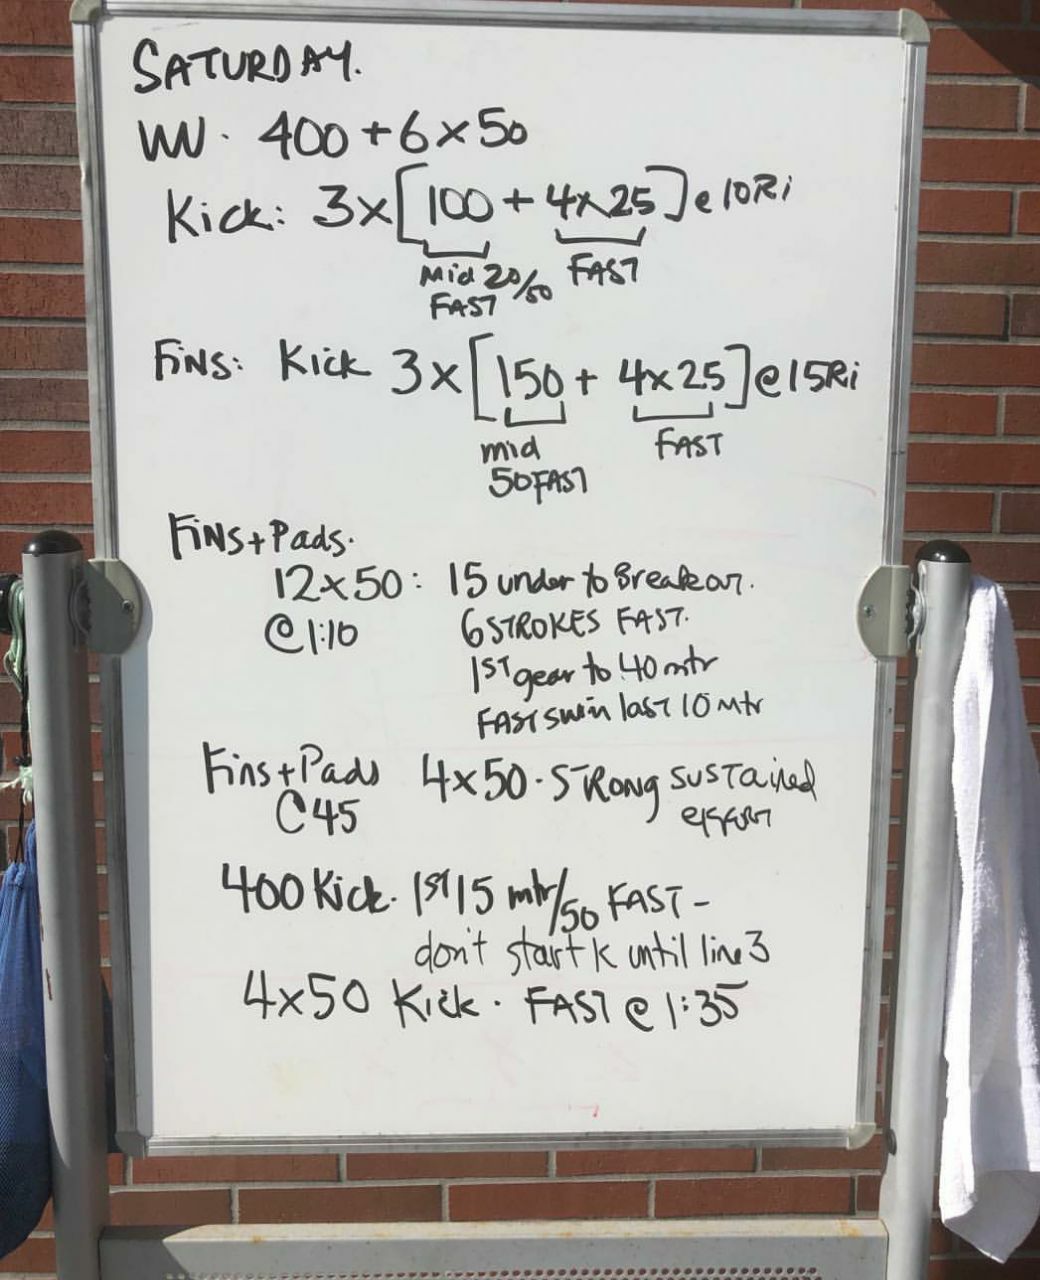 SATURDAY.
WU. 400 + 6 x 50
Kick: 3 x [100 + 4 x 25] e 10Ri
Mid 20/50 FAST
FAST
FiNS: Kick 3 x [150 + 4 x 25] @ 15Ri
mid
FAST
50 FAST
FiNS + Pads.
12 x 50: 15 under to Breakout.
@ 1:10 6 STROKES FAST.
1ST gear to 40 mtr
FAST swim last 10 mtr
Fins + Pads 4 x 50 . STRong sustained
@ 45 effort
400 Kick. 1ST 15 mtr/50 FAST -
don't start K until line 3
4 x 50 Kick. FAST @ 1:35